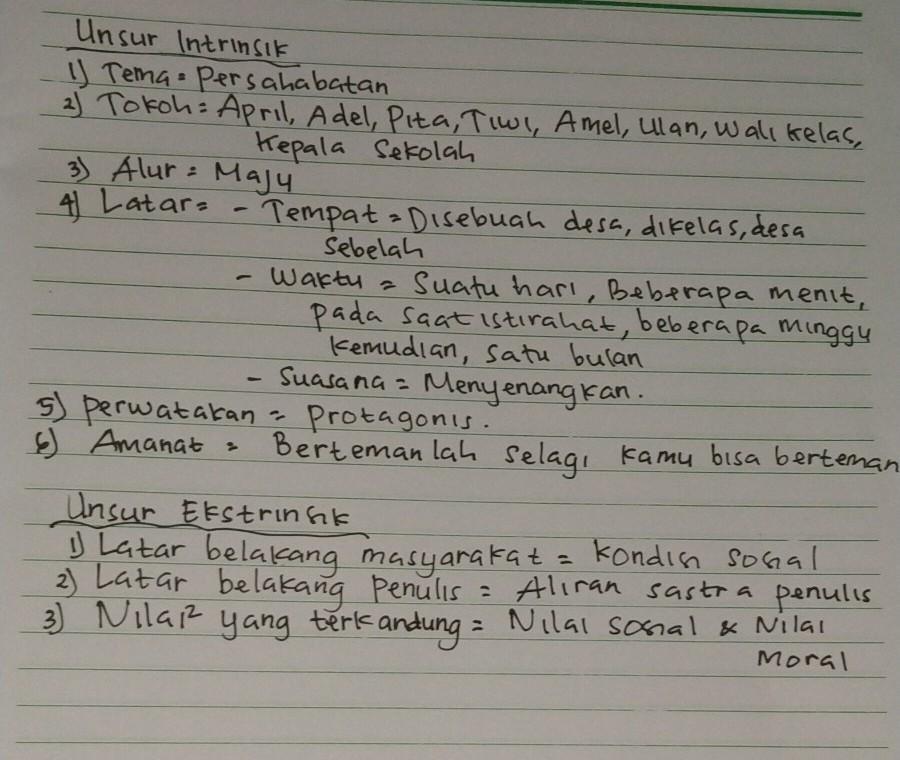 Unsur Intrinsik
1) Tema = Persahabatan
2) Tokoh = April, Adel, Pita, Tiwi, Amel, Ulan, Wali kelas,
Kepala Sekolah
3) Alur = Maju
4) Latar = - Tempat = Disebuah desa, dikelas, desa
Sebelah
- Waktu = Suatu hari, Beberapa menit,
pada saat istirahat, beberapa minggu
kemudian, satu bulan
- Suasana = Menyenangkan.
5) perwatakan = protagonis.
6) Amanat = Bertemanlah selagi kamu bisa berteman
Unsur Ekstrinsik
1) Latar belakang masyarakat = kondisi sosial
2) Latar belakang Penulis = Aliran sastra penulis
3) Nilai² yang terkandung = Nilai sosial & Nilai
Moral